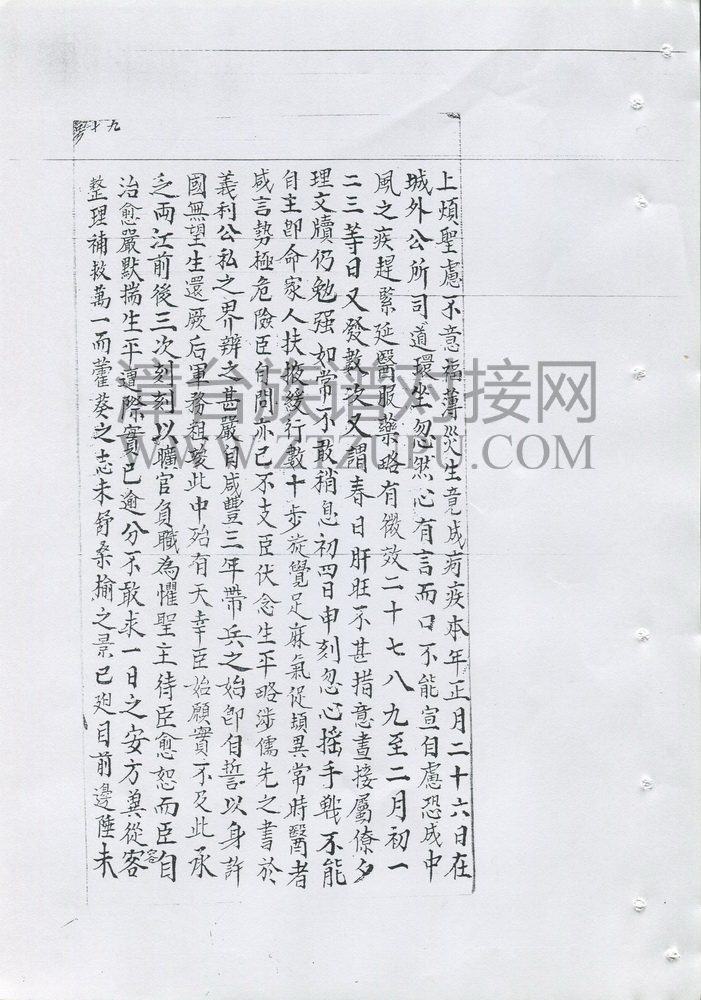 上煩聖慮不意福薄災生竟成疴疾本年正月二十六日在
城外公所司道環坐忽然心有言而口不能宣自慮恐成中
風之疾趕緊延醫服藥略有微效二十七八九至二月初一
二三等日又發數次又謂春日肝旺不甚措意晝接屬僚夕
理文牘仍勉强如常不敢稍息初四日申刻忽心摇手戰不能
自主卽命家人扶掖緩行數十步旋覺足麻氣促頭異常時醫者
咸言勢極危險臣自問亦已不支臣伏念生平略涉儒先之書於
義利公私之界辨之甚嚴自咸豐三年帶兵之始卽自誓以身許
國無望生還厥后軍務粗竣此中殆有天幸臣始願實不及此承
乏兩江前後三次刻刻以曠官負職為懼聖主待臣愈恕而臣自
治愈嚴默揣生平遭際實已逾分不敢求一日之安方冀從客容
整理補救萬一而藿葵之志未舒桑榆之景已廹目前邊陲未
十九
清台族谱对接网
WWW.ZTZUPU.COM